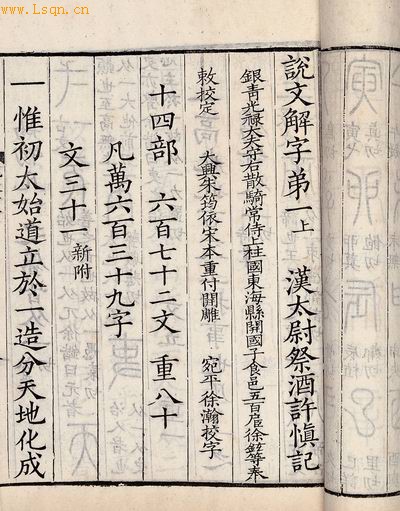 www.Lsqn.cn
説文解字弟一上 漢太尉祭酒許愼記
銀青光祿大夫守右散騎常侍上柱國東海縣開國子食邑五百戶徐鉉等奉
敕校定 大興朱筠依宋本重付開雕 宛平徐瀚挍字
十四部 六百七十二文 重八十
凡萬六百三十九字
文三十一新附
一 惟初太始道立於一造分天地化成